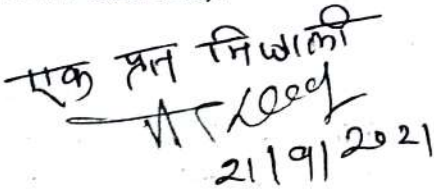 एक प्रत मिळाली
21/9/2021